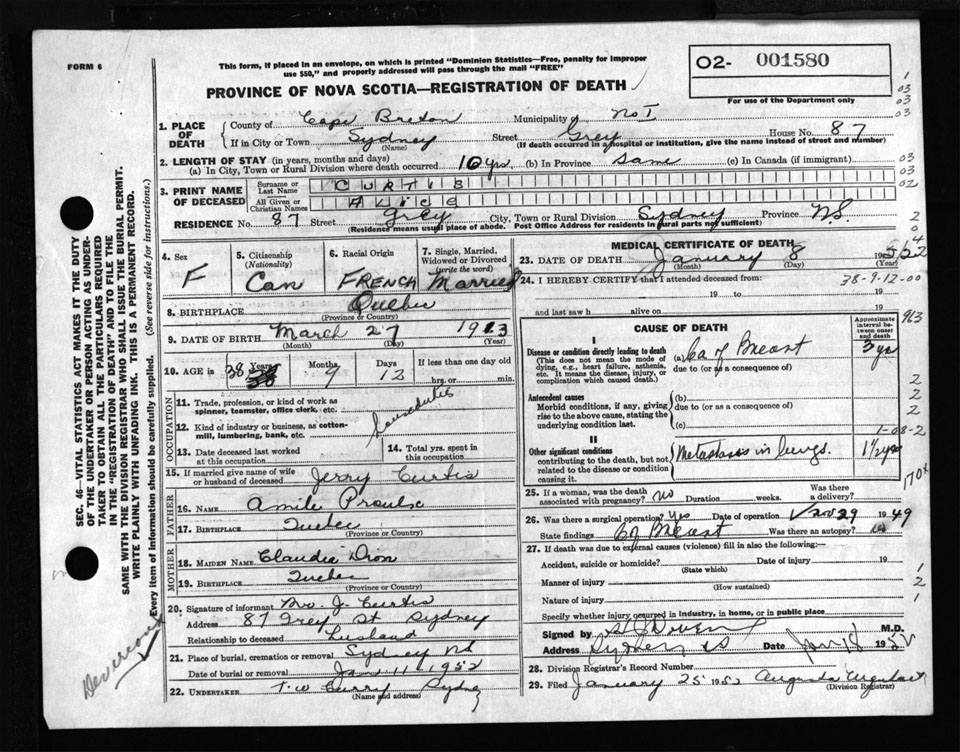 FORM 6
This form, if placed in an envelope, on which is printed "Dominion Statistics—Free, penalty for improper
use $50," and properly addressed will pass through the mail "FREE"
PROVINCE OF NOVA SCOTIA—REGISTRATION OF DEATH
02- 001580
For use of the Department only
1. PLACE OF DEATH
County of Cape Breton Municipality of No 1
If in City or Town Sydney Street Grey House No. 87
(Name) (If death occurred in a hospital or institution, give the name instead of street and number)
2. LENGTH OF STAY (in years, months and days)
(a) In City, Town or Rural Division where death occurred 10 yrs. (b) In Province same (c) In Canada (if immigrant)
3. PRINT NAME OF DECEASED
Surname or Last Name CURTIS
All Given or Christian Names ALICE
RESIDENCE No. 87 Street Grey City, Town or Rural Division Sydney Province N.S.
(Residence means usual place of abode. Post Office Address for residents in rural parts not sufficient)
4. Sex F
5. Citizenship (Nationality) Can
6. Racial Origin FRENCH
7. Single, Married, Widowed or Divorced (write the word) Married
8. BIRTHPLACE Quebec
(Province or Country)
9. DATE OF BIRTH March 27 1913
(Month) (Day) (Year)
10. AGE in 38 Years 9 Months 12 Days If less than one day old hrs. or min.
OCCUPATION
11. Trade, profession or kind of work as spinner, teamster, office clerk, etc.
12. Kind of industry or business, as cotton-mill, lumbering, bank, etc.
housedutis
13. Date deceased last worked at this occupation
14. Total yrs. spent in this occupation
15. If married give name of wife or husband of deceased Jerry Curtis
FATHER
16. NAME
17. BIRTHPLACE Quebec
(Province or Country)
MOTHER
18. MAIDEN NAME Claudia Dion
19. BIRTHPLACE Quebec
(Province or Country)
20. Signature of informant Mr J. Curtis
Address 87 Grey St Sydney
Relationship to deceased husband
21. Place of burial, cremation or removal Sydney NS
Date of burial or removal Jan 11 1952
22. UNDERTAKER T.W Curry Sydney
(Name and address)
MEDICAL CERTIFICATE OF DEATH
23. DATE OF DEATH January 8 1952
(Month) (Day) (Year)
24. I HEREBY CERTIFY that I attended deceased from:
38-9-12-00
19 to 19
and last saw h alive on 19
CAUSE OF DEATH
Approximate interval between onset and death
I
Disease or condition directly leading to death (a) Ca of Breast 3 yrs
(This does not mean the mode of dying, e.g., heart failure, asthenia, etc. It means the disease, injury, or complication which caused death.)
due to (or as a consequence of)
Antecedent causes
Morbid conditions, if any, giving rise to the above cause, stating the underlying condition last.
(b)
due to (or as a consequence of)
(c)
II
Other significant conditions
contributing to the death, but not related to the disease or condition causing it.
Metastases in lungs. 1½ yrs
25. If a woman, was the death associated with pregnancy? no Duration weeks. Was there a delivery?
26. Was there a surgical operation? Yes Date of operation Nov 29 1949
State findings Ca of Breast Was there an autopsy?
27. If death was due to external causes (violence) fill in also the following:—
Accident, suicide or homicide? Date of injury 19
(State which)
Manner of injury
(How sustained)
Nature of injury
Specify whether injury occurred in industry, in home, or in public place
Signed by M.D.
Address Sydney NS Date 1952
28. Division Registrar's Record Number
29. Filed January 25 1952 Augusta Urquhart
(Division Registrar)
SEC. 46—VITAL STATISTICS ACT MAKES IT THE DUTY
OF THE UNDERTAKER OR PERSON ACTING AS UNDER-
TAKER TO OBTAIN ALL THE PARTICULARS REQUIRED
IN THE "REGISTRATION OF DEATH" AND TO FILE THE
SAME WITH THE DIVISION REGISTRAR WHO SHALL ISSUE THE BURIAL PERMIT.
WRITE PLAINLY WITH UNFADING INK. THIS IS A PERMANENT RECORD.
Every item of information should be carefully supplied. (See reverse side for instructions.)
1
03
03
03
03
03
02
2
0
4
913
2
2
2
1-08-2
170x
1
2
1